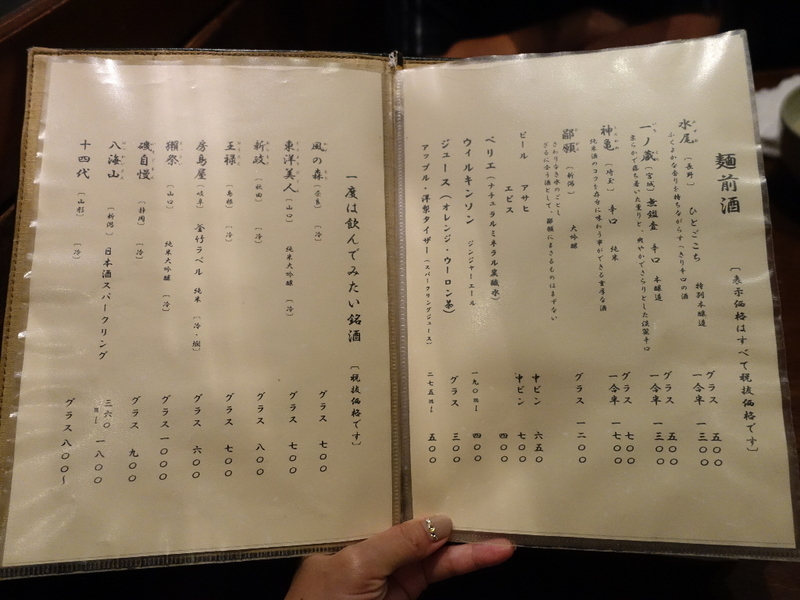 麺前酒 〔表示価格はすべて税抜価格です〕
水尾 〔長野〕 ひとごこち 特別本醸造 グラス 五〇〇
一合半 一三〇〇
ふくよかな香りを持ちながらすっきり辛口の酒
一ノ蔵 〔宮城〕 無鑑査 辛口 本醸造 グラス 五〇〇
一合半 一三〇〇
柔らかで落ち着いた薫りと、爽やかでさらりとした淡麗辛口
神亀 〔埼玉〕 辛口 純米 グラス 七〇〇
一合半 一七〇〇
純米酒のコクを存分に味わう事ができる重厚な酒
鄙願 〔新潟〕 大吟醸 グラス 一二〇〇
さわりなき水のごとし
ざるに合う酒として、鄙願にまさるものはまずない
ビール アサヒ 中ビン 六五〇
エビス 中ビン 七〇〇
ペリエ (ナチュラルミネラル炭酸水) 四〇〇
ウィルキンソン ジンジャーエール 一九〇ml 四〇〇
ジュース (オレンジ・ウーロン茶) グラス 三〇〇
アップル・洋梨タイザー (スパークリングジュース) 二七五ml 五〇〇
一度は飲んでみたい銘酒 〔税抜価格です〕
風の森 〔奈良〕 〔冷〕 グラス 七〇〇
東洋美人 〔山口〕 純米大吟醸 〔冷〕 グラス 七〇〇
新政 〔秋田〕 〔冷〕 グラス 八〇〇
王禄 〔島根〕 〔冷〕 グラス 七〇〇
房島屋 〔岐阜〕 釜竹ラベル 純米 〔冷・燗〕 グラス 六〇〇
獺祭 〔山口〕 純米大吟醸 〔冷〕 グラス 一〇〇〇
磯自慢 〔静岡〕 〔冷〕 グラス 九〇〇
八海山 〔新潟〕 日本酒スパークリング 三六〇ml 一八〇〇
十四代 〔山形〕 〔冷〕 グラス 八〇〇〜